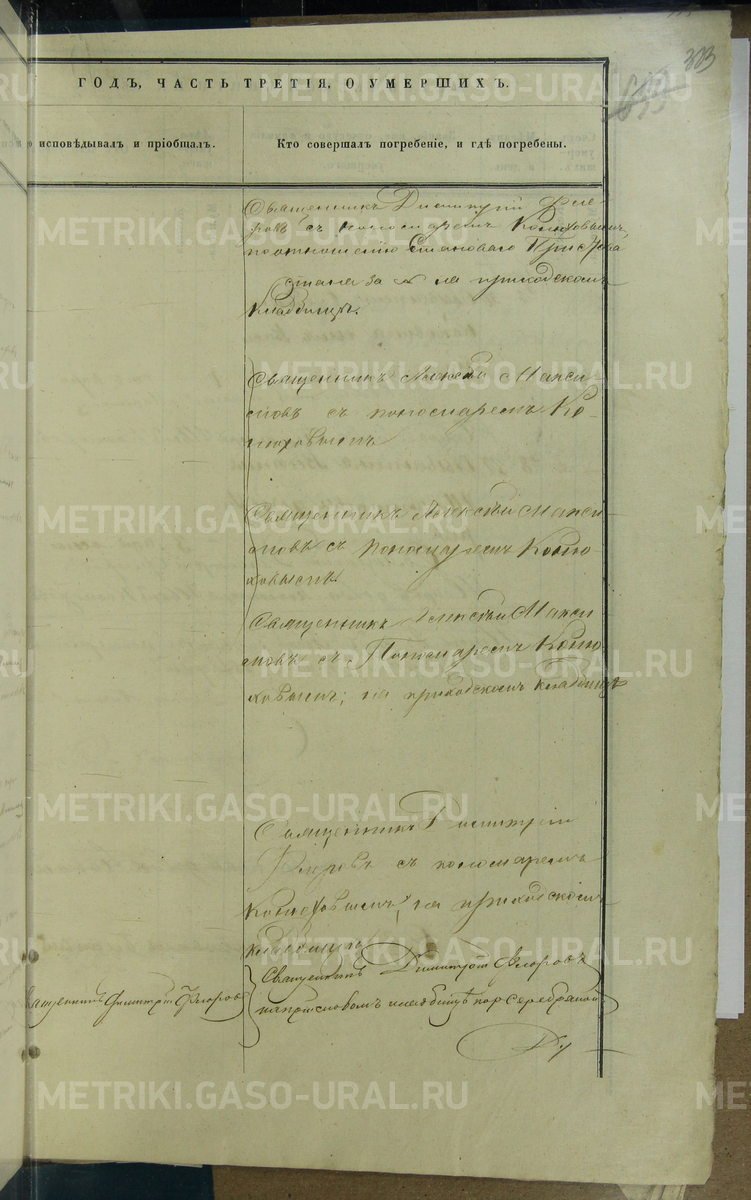 303
ГОДЪ, ЧАСТЬ ТРЕТІЯ, О УМЕРШИХЪ.
исповѣдывалъ и пріобщалъ.
Кто совершалъ погребеніе, и гдѣ погребены.
Священникъ Димитрій Флё-
ровъ съ пономаремъ Конюховымъ,
по отношенію Становаго Пристава
стана за № на приходскомъ
кладбищѣ.
Священникъ Алексѣй Макси-
мовъ съ пономаремъ Ко-
нюховымъ
Священникъ Алексѣй Макси-
мовъ съ пономаремъ Коню-
ховымъ
Священникъ Алексѣй Макси-
мовъ съ Пономаремъ Коню-
ховымъ; на приходскомъ кладбищѣ
Священникъ Димитрій
Флеровъ съ пономаремъ
Конюховымъ, на приходскомъ
кладбищѣ
Священникъ Димитрій Флоровъ
Священникъ Димитрій Флоровъ
кладбищѣ Серебряной
METRIKI.GASO-URAL.RU